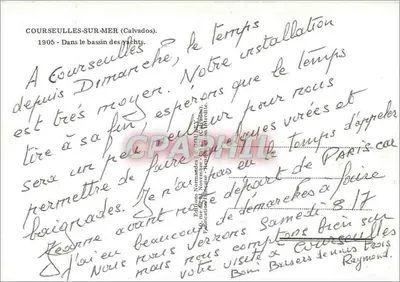 COURSEULLES-SUR-MER (Calvados).
1905 - Dans le bassin des yachts.
A Courseulles
depuis Dimanche, le temps
est très moyen. Notre installation
tire à sa fin, esperons que le temps
sera un peu meilleur pour nous
permettre de faire quelques virées et
baignades. Je n'ai pas eu le temps d'appeler
Jeanne avant notre départ de PARIS car
j'ai eu beaucoup de demarches a faire
Nous nous verrons Samedi 8/7
mais nous comptons bien sur
votre visite à Courseulles
Bons Baisers de nous trois
Raymond.
CPAPHIL